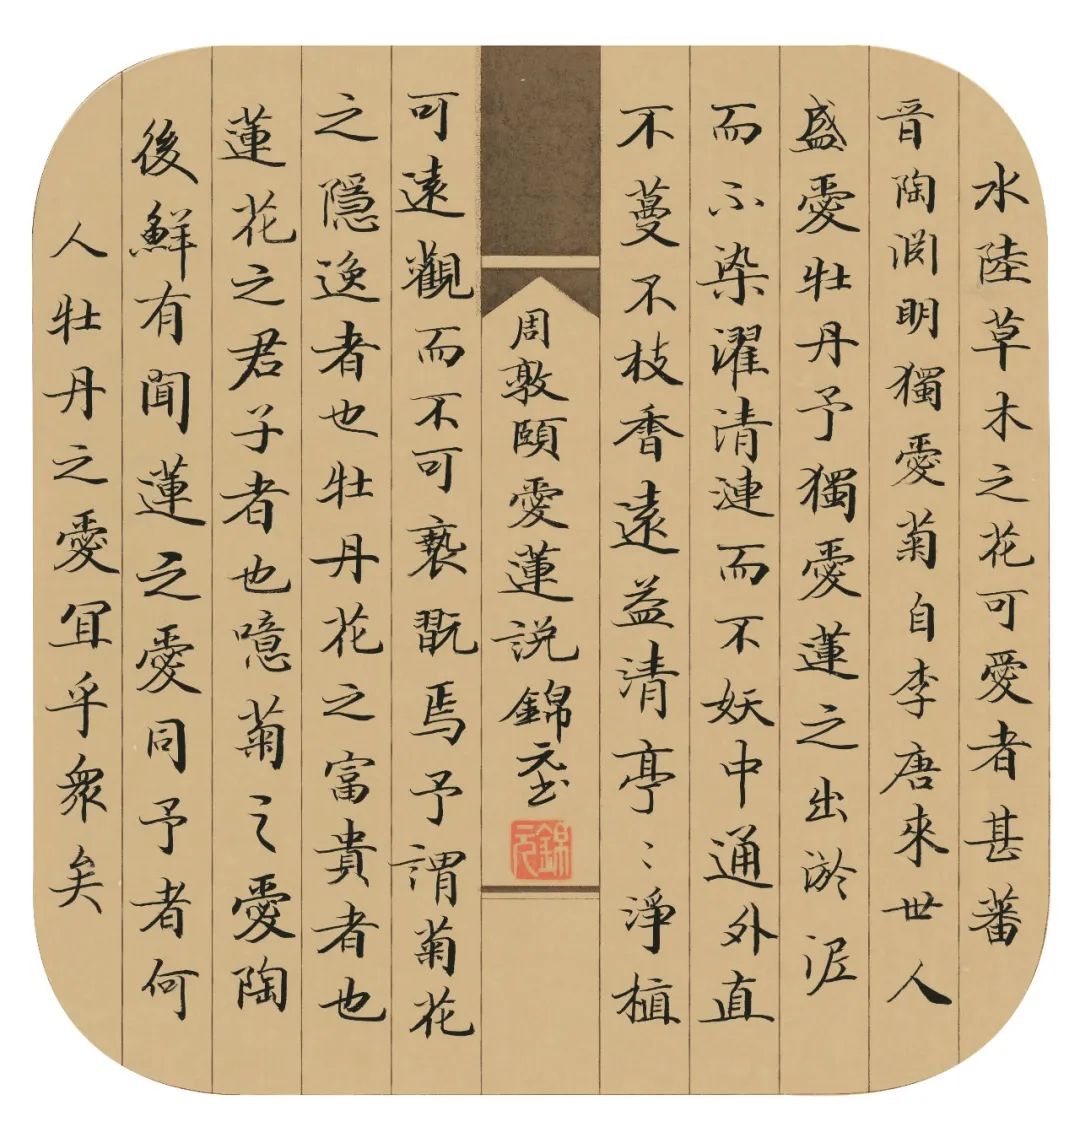 水陸草木之花可愛者甚蕃
晉陶渊明獨愛菊自李唐來世人
盛愛牡丹予獨愛蓮之出淤泥
而不染濯清漣而不妖中通外直
不蔓不枝香遠益清亭〻淨植
周敦頤愛蓮説錦元书
錦元
可遠觀而不可褻翫焉予謂菊花
之隱逸者也牡丹花之富貴者也
蓮花之君子者也噫菊之愛陶
後鮮有聞蓮之愛同予者何
人牡丹之愛冝乎衆矣